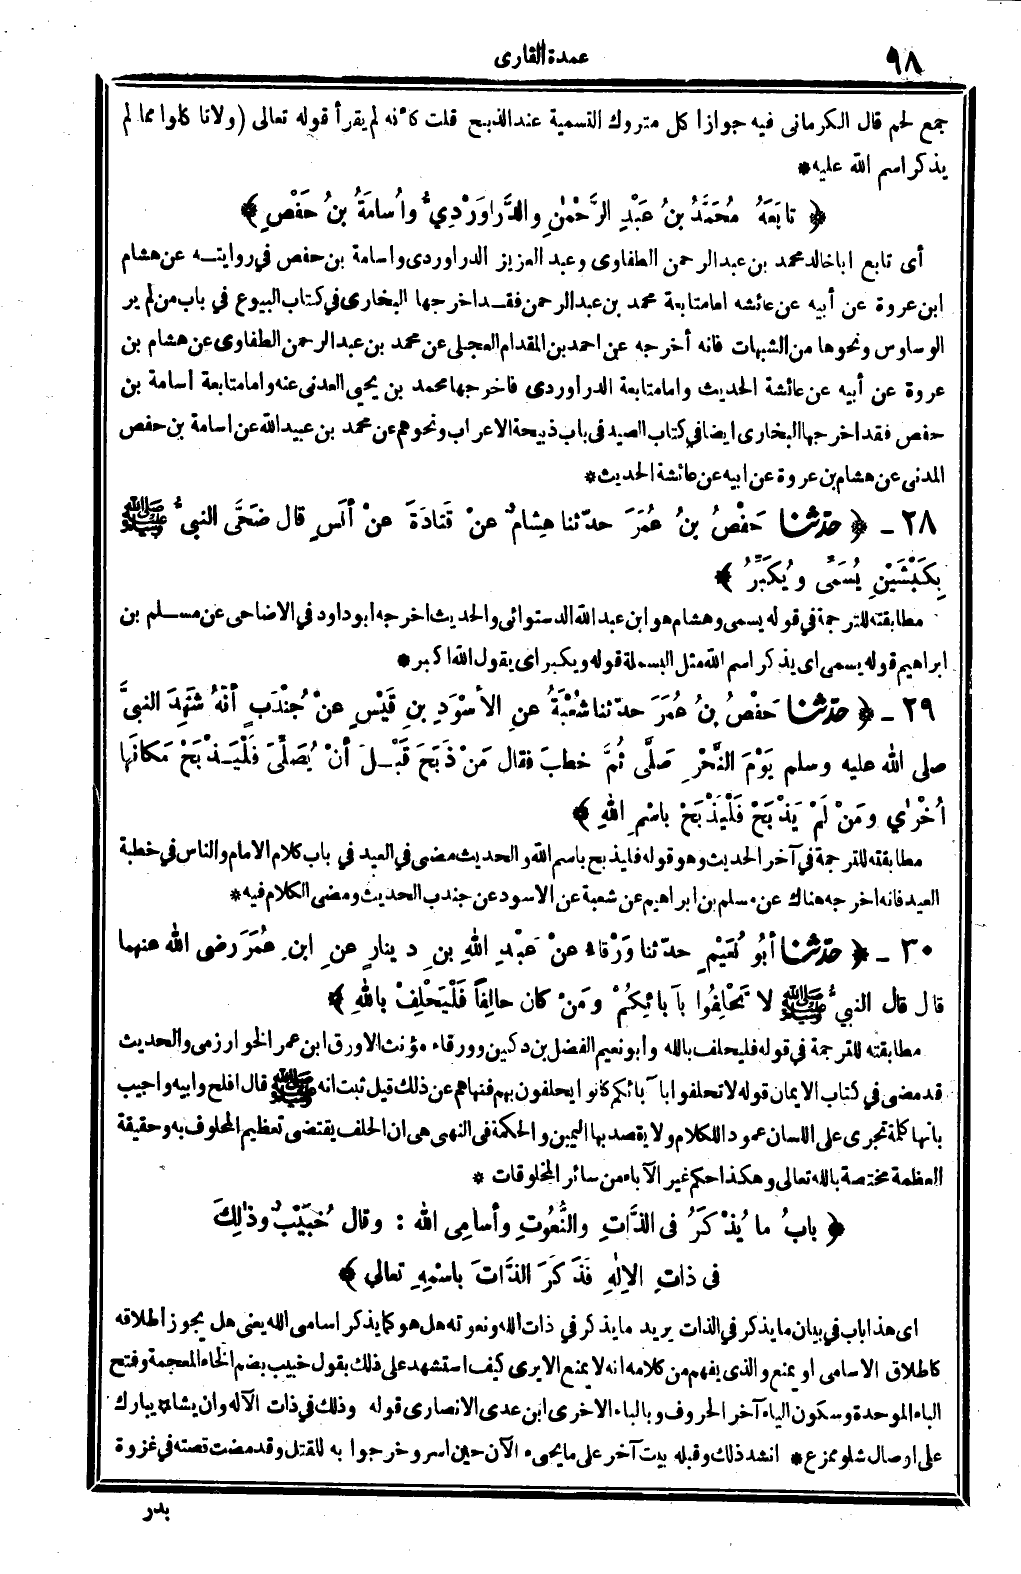 ٩٨
عمدة القارى
جمع لحم قال الكرمانى فيه جواز اكل متروك التسمية عند الذبح قلت كأنه لم يقرأ قوله تعالى (ولا تاكلوا مما لم
يذكر اسم الله عليه *
﴿ تابَعَهُ مُحَمَّدُ بنُ عَبْدِ الرَّحْمٰنِ والدَّرَاوَرْدِيُّ وأُسامَةُ بنُ حَفْصٍ ﴾
أى تابع اباخالد محمد بن عبد الرحمن الطفاوى وعبد العزيز الدراوردى واسامة بن حفص في روايته عن هشام
ابن عروة عن أبيه عن عائشه امامتابعة محمد بن عبد الرحمن فقد اخرجها البخارى في كتاب البيوع في باب من لم ير
الوساوس ونحوها من الشبهات فانه أخرجه عن احمد بن المقدام العجلى عن محمد بن عبد الرحمن الطفاوى عن هشام بن
عروة عن أبيه عن عائشة الحديث وامامتابعة الدراوردى فاخرجها محمد بن يحيى العدنى عنه وامامتابعة أسامة بن
حفص فقد اخرجها البخارى ايضا في كتاب الصيد فى باب ذبيحة الاعراب ونحوهم عن محمد بن عبيد الله عن اسامة بن حفص
المدنى عن هشام بن عروة عن ابيه عن عائشة الحديث *
٢٨ ـ ﴿ حدّثنا حَفْصُ بنُ عُمَرَ حدّثنا هِشامٌ عنْ قَتَادَةَ عنْ أنَسٍ قال ضَحَّى النبيُّ ﷺ
بِكَبْشَيْنِ يُسَمِّى ويُكَبِّرُ ﴾
مطابقته للترجمة في قوله يسمى وهشام هو ابن عبد الله الدستوائى والحديث اخرجه ابو داود في الاضاحى عن مسلم بن
ابراهيم قوله يسمى اى يذكر اسم الله مثل البسملة قوله ويكبر اى يقول الله اكبر *
٢٩ ـ ﴿ حدّثنا حَفْصُ بنُ عُمَرَ حدّثنا شُعْبَةُ عنِ الأسْوَدِ بنِ قَيْسٍ عنْ جُنْدَبٍ أنَّهُ شَهِدَ النبيَّ
صلى الله عليه وسلم يَوْمَ النَّحْرِ صَلَّى ثُمَّ خطبَ فقال مَنْ ذَبَحَ قَبْلَ أنْ يُصَلِّىَ فَلْيَذْبَحْ مَكانَها
أُخْرَي ومَنْ لَمْ يَذْبَحْ فَلْيَذْبَحْ باسْمِ اللهِ ﴾
مطابقته للترجمة في آخر الحديث وهو قوله فليذبح باسم الله والحديث مضى في العيد في باب كلام الامام والناس في خطبة
العيد فانه اخرجه هناك عن مسلم بن ابراهيم عن شعبة عن الاسود عن جندب الحديث ومضى الكلام فيه *
٣٠ ـ ﴿ حدّثنا أبُو نُعَيْمٍ حدّثنا وَرْقاءُ عنْ عَبْدِ اللهِ بنِ دينارٍ عنِ ابنِ عُمَرَ رضى الله عنهما
قال قال النبيُّ ﷺ لا تَحْلِفُوا بآبائِكُمْ ومَنْ كان حالِفاً فَلْيَحْلِفْ باللهِ ﴾
مطابقته للترجمة في قوله فليحلف بالله وابو نعيم الفضل بن دكين وورقاء مؤنث الاورق ابن عمر الخوارزمى والحديث
قد مضى في كتاب الايمان قوله لا تحلفوا بآبائكم كانوا يحلفون بهم فنهاهم عن ذلك قيل ثبت انه ﷺ قال افلح وابيه واجيب
بانها كلمة تجرى على اللسان عمود اللكلام ولا يقصد بها اليمين والحكمة فى النهى هى ان الحلف يقتضى تعظيم المحلوف به وحقيقة
العظمة مختصة بالله تعالى وهكذا حكم غير الآباء من سائر المخلوقات *
﴿ بابُ ما يُذْكَرُ فى الذَّاتِ والنُّعُوتِ وأسامِى الله : وقال خُبَيْبٌ وذٰلِكَ
فى ذاتِ الإِلٰهِ فَذَكَرَ الذَّاتَ باسْمِهِ تعالي ﴾
اى هذا باب في بيان ما يذكر في الذات يريد ما يذكر في ذات الله ونعوته هل هو كما يذكر اسامى الله يعنى هل يجوز أطلاقه
كاطلاق الاسامى او يمنع والذى يفهم من كلامه انه لا يمنع الا يرى كيف استشهد على ذلك بقول خبيب بضم الخاء المعجمة وفتح
الباء الموحدة وسكون الياء آخر الحروف وبالباء الاخرى ابن عدى الانصارى قوله وذلك في ذات الآله وان يشا* يبارك
على اوصال شلو ممزع * انشد ذلك وقبله بيت آخر على ما يجىء الآن حين اسر وخرجوا به للقتل وقد مضت قصته في غزوة
بدر